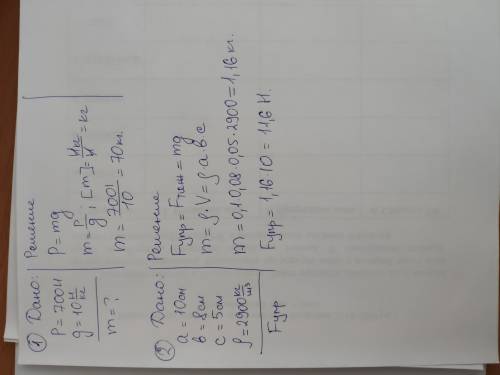 ① Дано:
P = 700 Н
g = 10 Н/кг
m = ?
Решение
P = mg
m = P/g ; [m] = Н·кг/Н = кг
m = 700/10 = 70 кг.
② Дано:
a = 10 см
b = 8 см
c = 5 см
ρ = 2900 кг/м³
Fупр
Решение
Fупр = Fтяж = mg
m = ρ·V = ρ a·b c
m = 0,1·0,08·0,05·2900 = 1,16 кг.
Fупр = 1,16·10 = 11,6 Н.